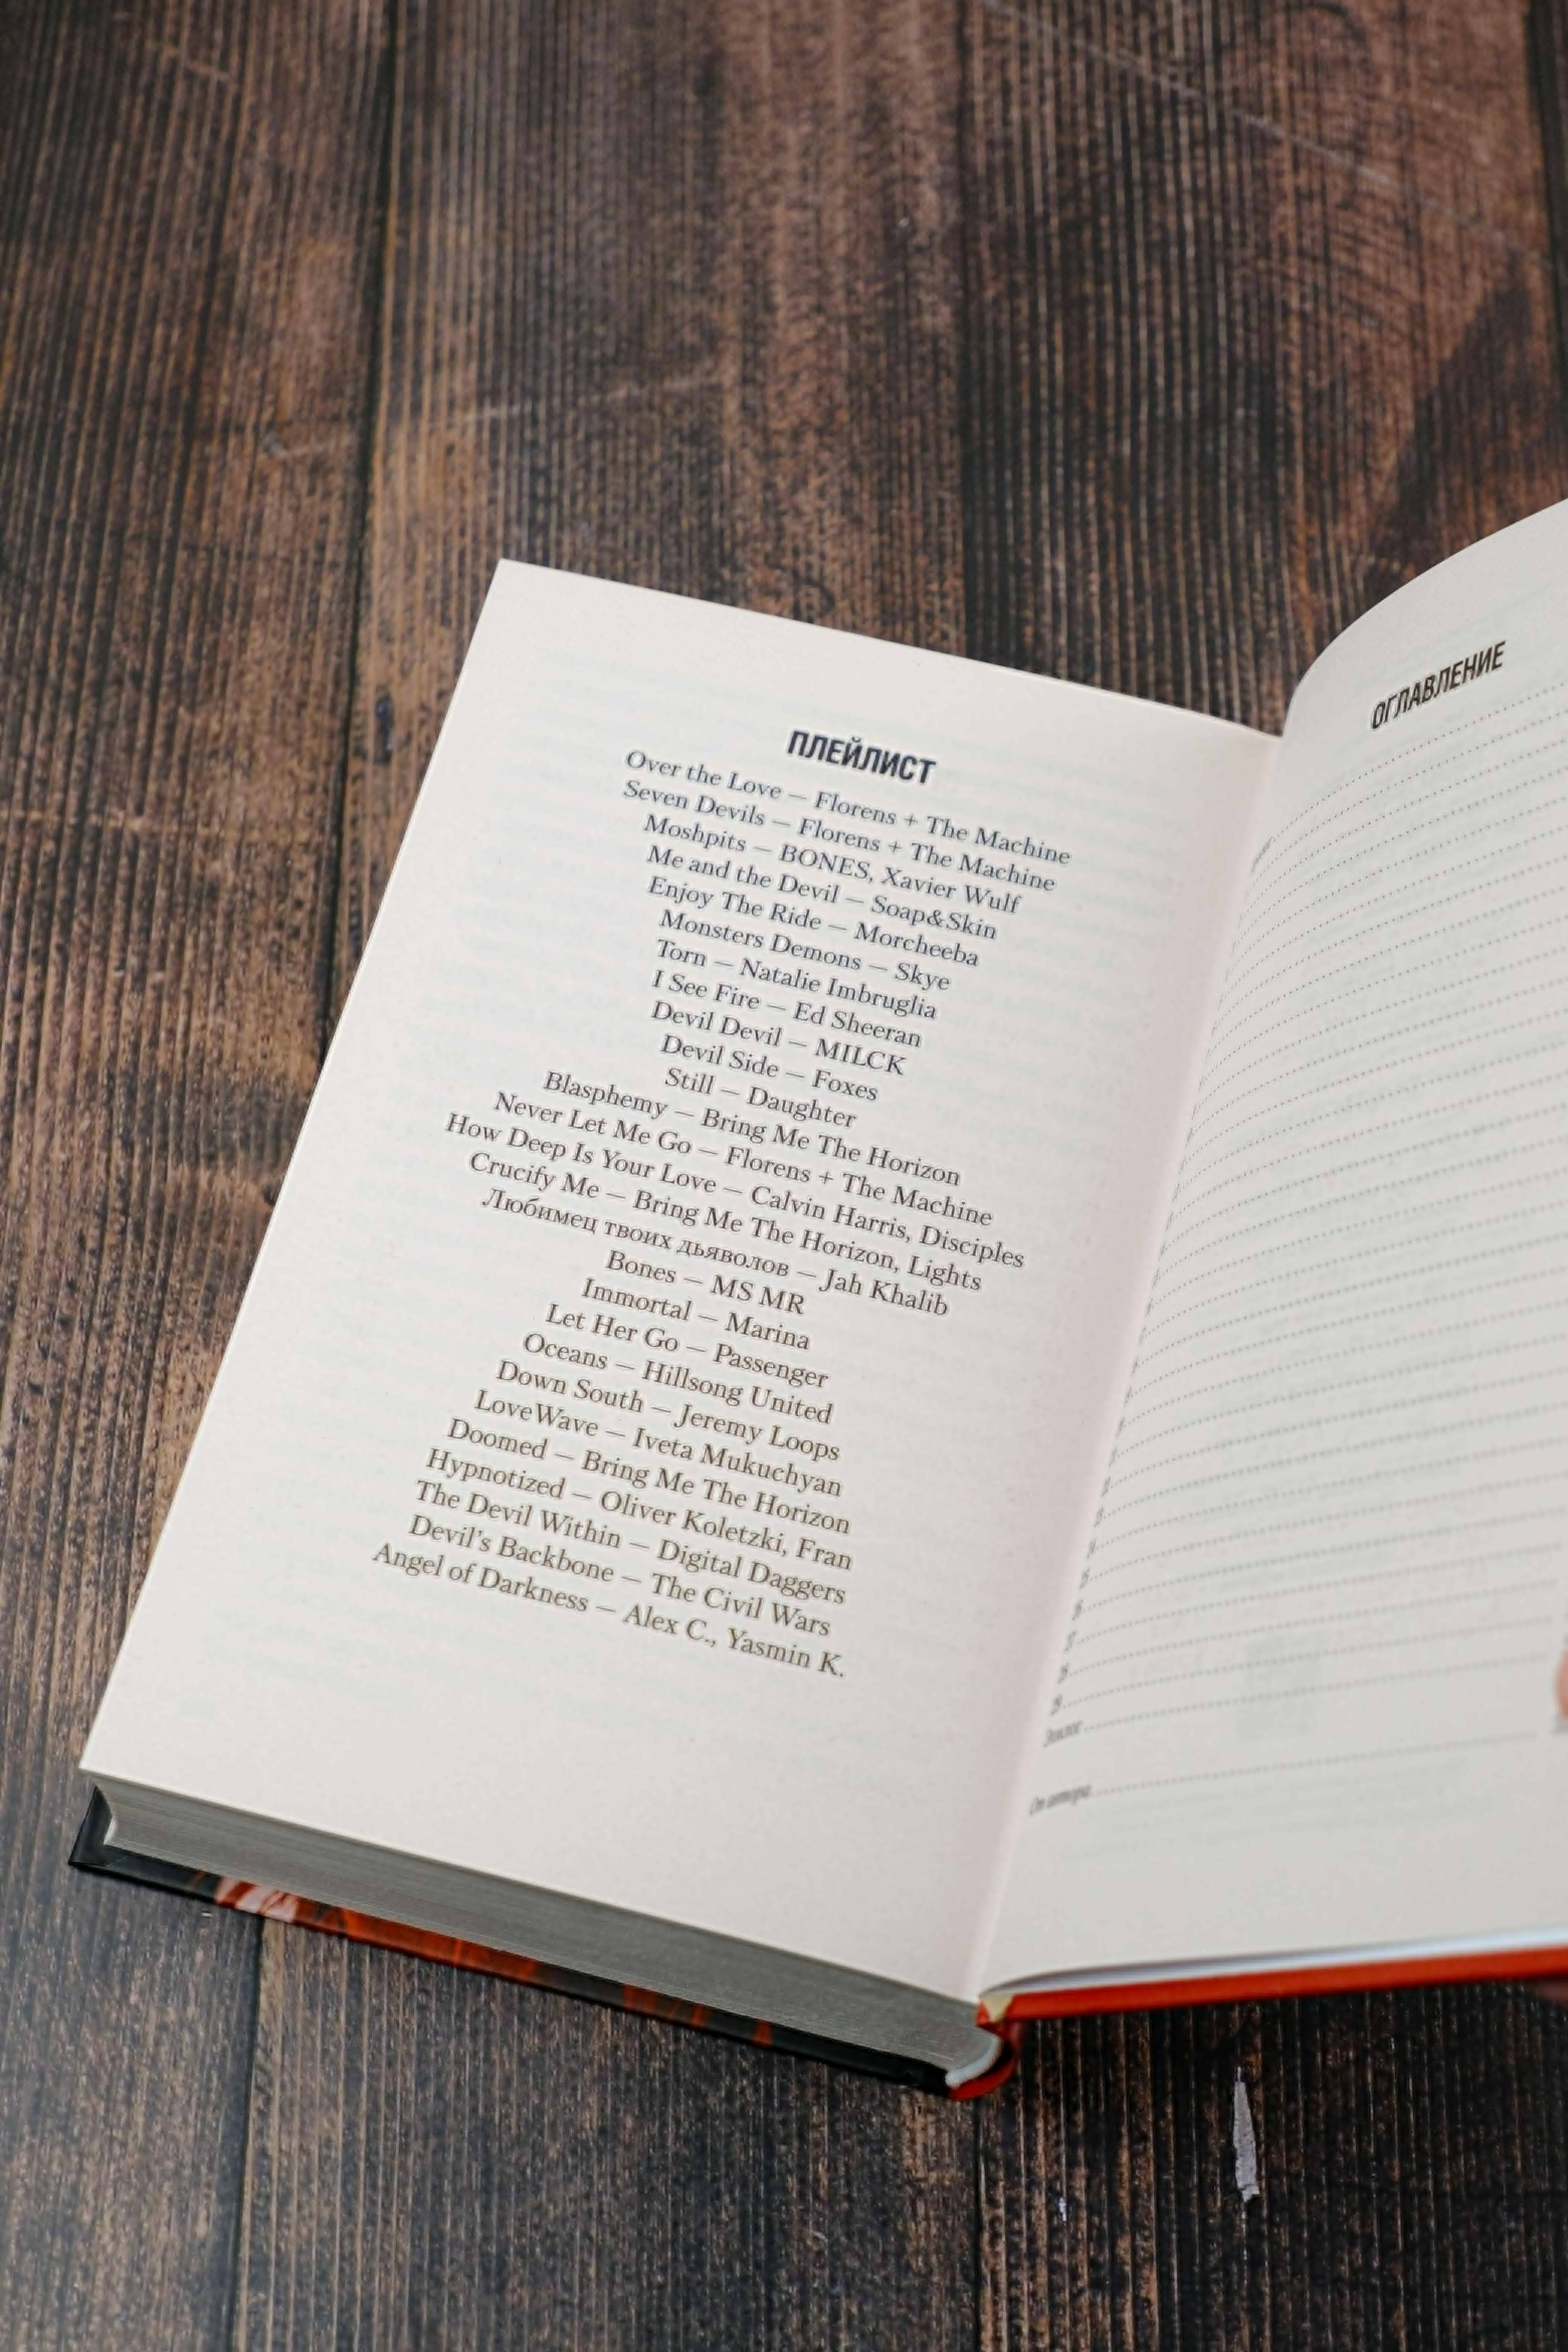 ПЛЕЙЛИСТ
Over the Love — Florens + The Machine
Seven Devils — Florens + The Machine
Moshpits — BONES, Xavier Wulf
Me and the Devil — Soap&Skin
Enjoy The Ride — Morcheeba
Monsters Demons — Skye
Torn — Natalie Imbruglia
I See Fire — Ed Sheeran
Devil Devil — MILCK
Devil Side — Foxes
Still — Daughter
Blasphemy — Bring Me The Horizon
Never Let Me Go — Florens + The Machine
How Deep Is Your Love — Calvin Harris, Disciples
Crucify Me — Bring Me The Horizon, Lights
Любимец твоих дьяволов — Jah Khalib
Bones — MS MR
Immortal — Marina
Let Her Go — Passenger
Oceans — Hillsong United
Down South — Jeremy Loops
LoveWave — Iveta Mukuchyan
Doomed — Bring Me The Horizon
Hypnotized — Oliver Koletzki, Fran
The Devil Within — Digital Daggers
Devil's Backbone — The Civil Wars
Angel of Darkness — Alex C., Yasmin K.
ОГЛАВЛЕНИЕ
Эпилог
От автора